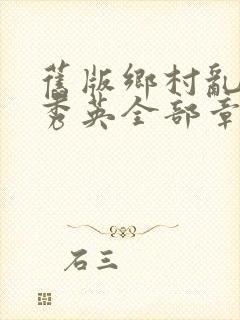 舊版鄉村亂
秀英全部章
石三